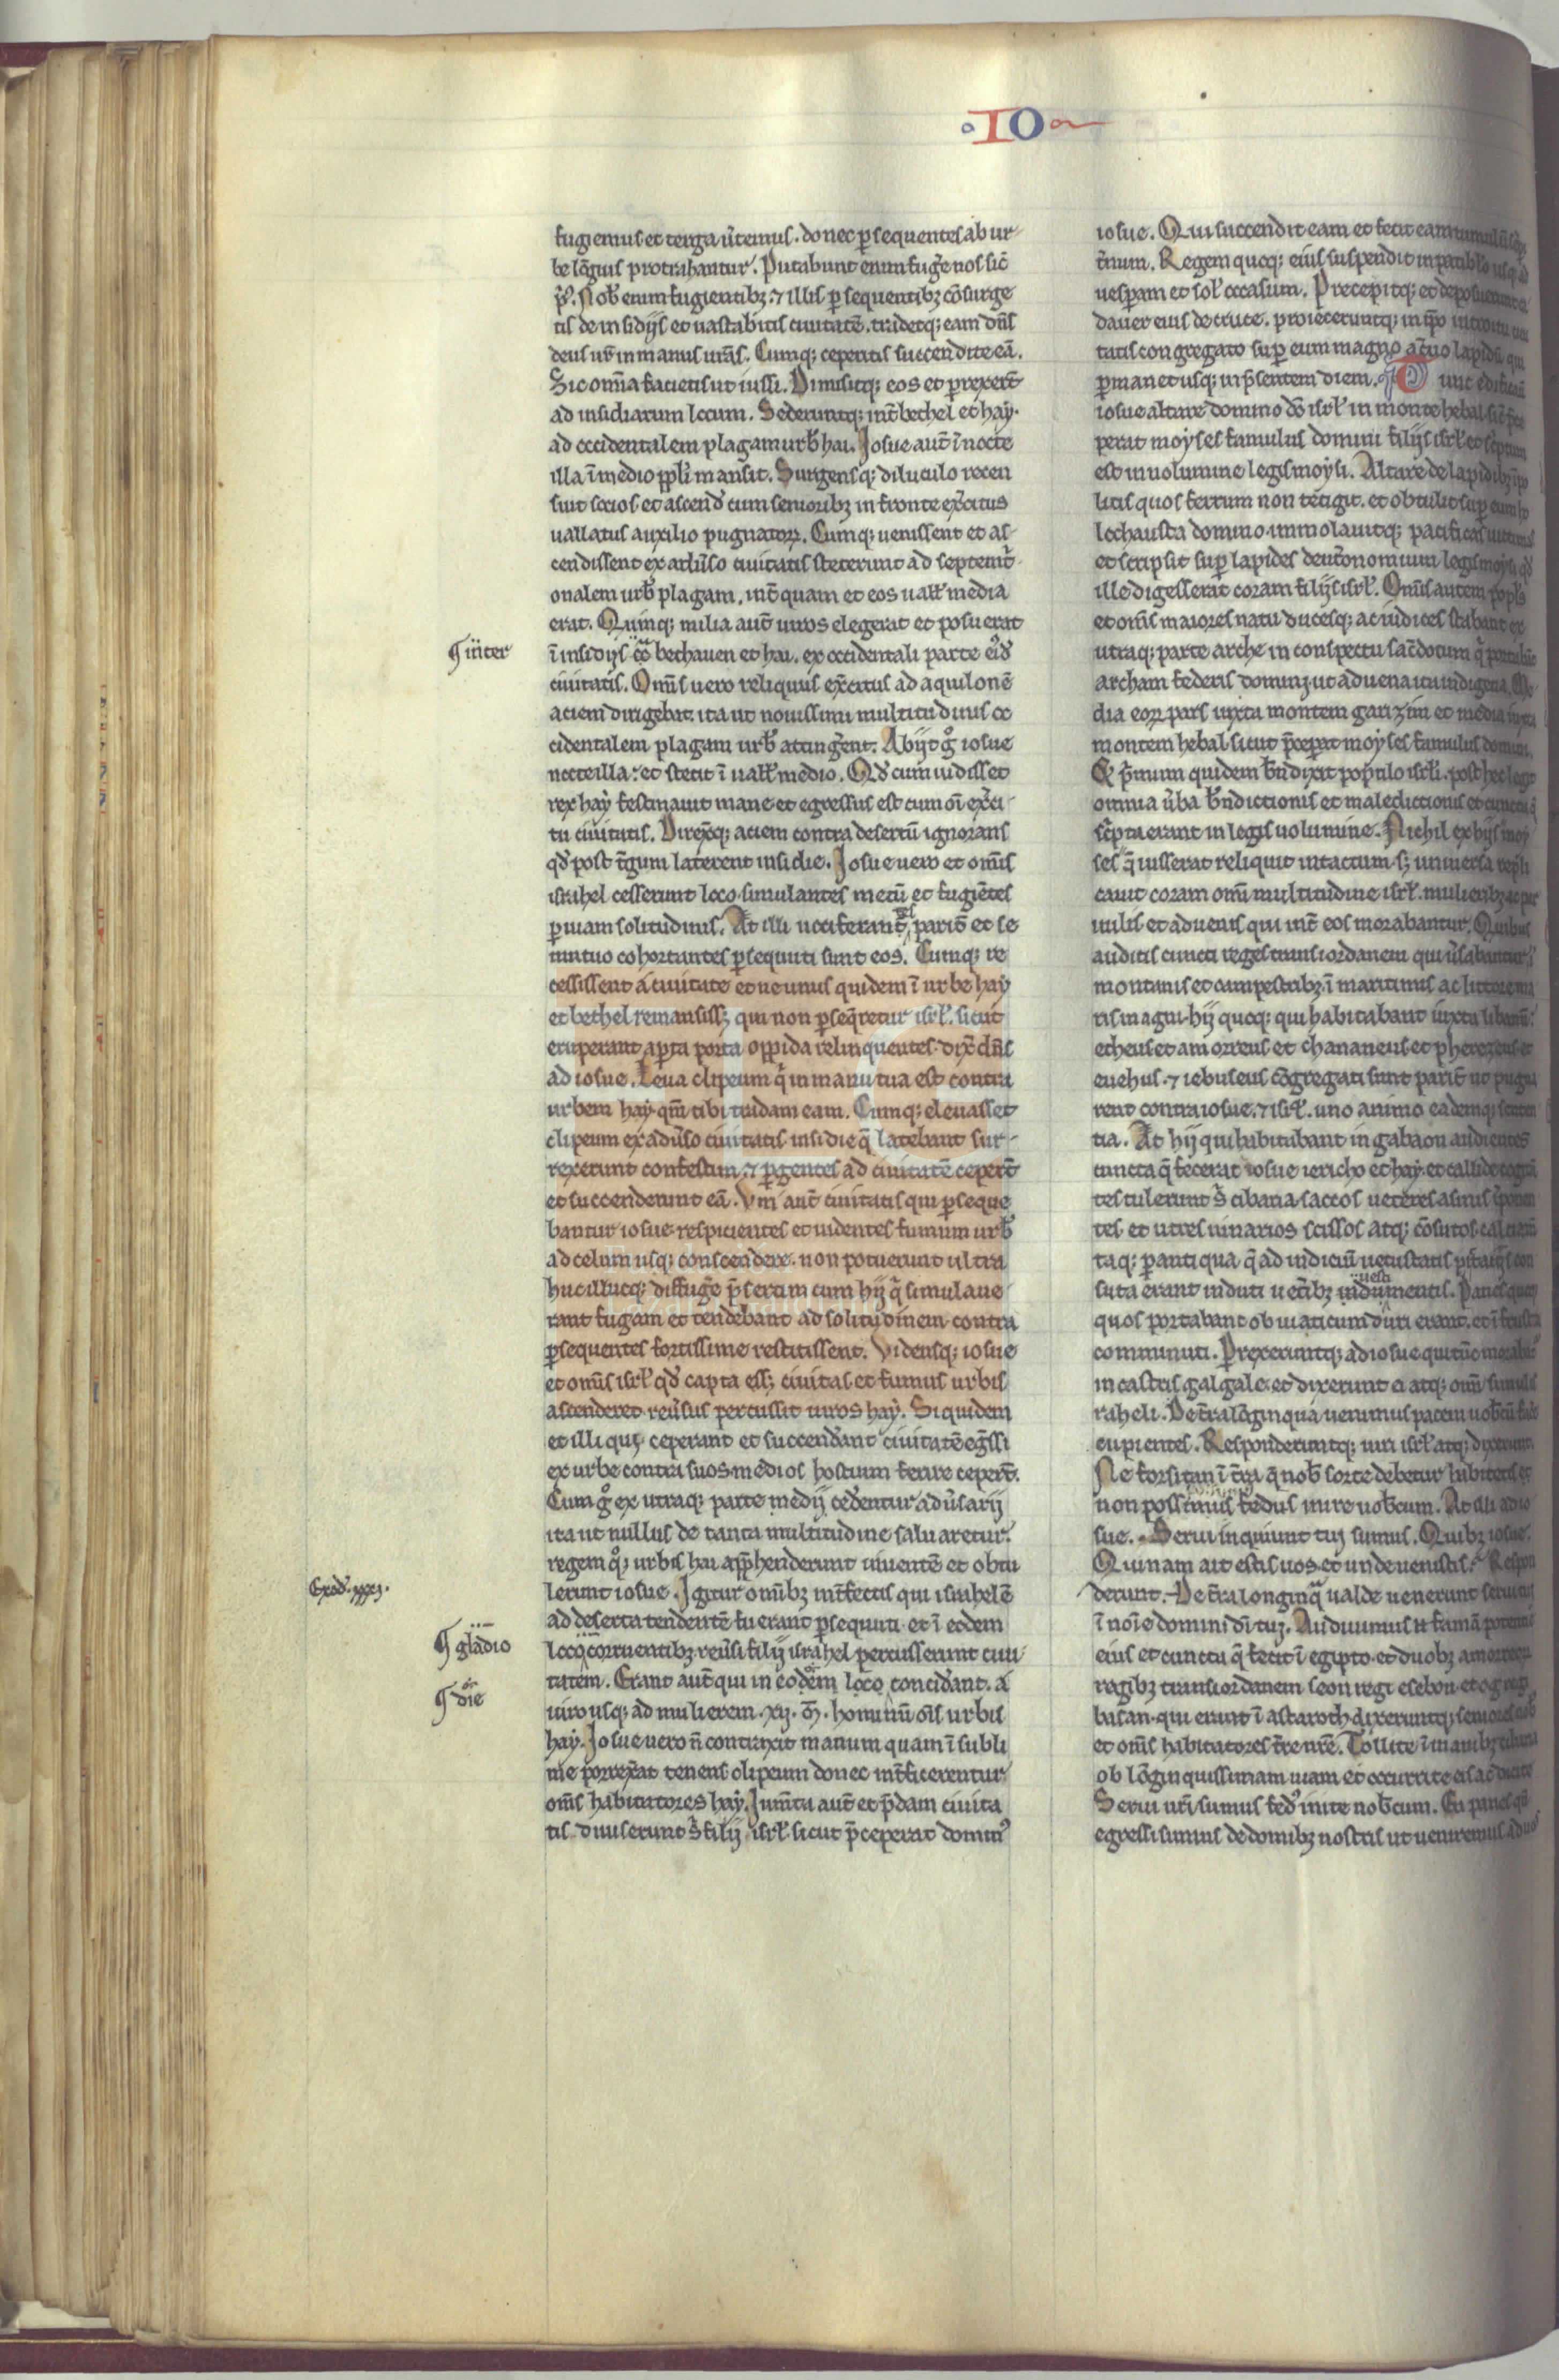 IO
fugiemus et terga ũtemus . donec ꝑsequentes ab ur
be lõgius protrahantur . Putabunt enim fug̃e nos sic̃
p̃ꝰ . Nob̃ enim fugientibꝫ ⁊ illis ꝑsequentibꝫ cõsurge
tis de insidijs et uastabitis ciuitatẽ . tradetqꝫ eam dñs
deus ur̃ in manus ur̃as . Cumqꝫ ceperitis succendite eã .
Sic om̃ia facietis ut iussi . Dimisitqꝫ eos et perrexer̃t
ad insidiarum locum . Sederuntqꝫ int̃ bethel et hay .
ad occidentalem plagam urb̃ hai . Josue aut̃ ĩ nocte
illa ĩ medio ppl̃i mansit . Surgensqꝫ diluculo recen
suit socios et ascend̃ cum senioribꝫ in fronte ex̃citus
uallatus auxilio pugnatoꝝ . Cumqꝫ uenissent et as
cendissent ex adũso ciuitatis steterunt ad septemt̃
onalem urb̃ plagam , int̃ quam et eos uall̃ media
erat . Quinqꝫ milia aut̃ uiros elegerat et posuerat
¶ inter
ĩ insidijs bethauen et hai . ex occidentali parte eiꝰd̃
ciuitatis . Om̃s uero reliquus ex̃citus ad aquilonẽ
aciem dirigebat . ita ut nouissimi multitudinis oc
cidentalem plagam urb̃ atting̃ent . Abijt g̊ iosue
nocte illa . et stetit ĩ uall̃ medio . Qd̃ cum uidisset
rex hay festinauit mane et egressus est cum oĩ ex̃ci
tu ciuitatis . Direx̃qꝫ aciem contra desertũ ignorans
qd̃ post t̃gum laterent insidie . Josue uero et om̃s
israhel cesserunt loco simulantes metũ et fugiẽtes
ꝑ uiam solitudinis . At illi uociferant̃ parit̃ et se
mutuo cohortantes ꝑsequuti sunt eos . Cumqꝫ re
cessissent a ciuitate et ne unus quidem ĩ urbe hay
et bethel remansissꝫ qui non ꝑseq̃retur isrl̃ . sicut
eruperant aꝑta porta oppida relinquentes . dix̃ dñs
ad iosue . Leua clipeum q̃ in manu tua est contra
urbem hay qm̃ tibi tradam eam . Cumqꝫ eleuasset
clipeum ex adũso ciuitatis insidie q̃ latebant sur
rexerunt confestim . ⁊ ꝑgentes ad ciuitatẽ ceper̃t
et succenderunt eã . Vιri aut̃ ciuitatis qui ꝑseque
bantur iosue respicientes et uidentes fumum urb̃
ad celum usqꝫ conscendere . non potuerunt ultra
huc illucqꝫ diffug̃e p̃sertim cum hij q̃ simulaue
rant fugam et tendebant ad solitudinem contra
ꝑsequentes fortissime restitissent . Vidensqꝫ iosue
et om̃s isrl̃ qd̃ capta essꝫ ciuitas et fumus urbis
ascenderet reũsus percussit uiros hay . Siquidem
et illi qui ceperant et succend̃ant ciuitatẽ eg̃ssi
ex urbe contra suos medios hostium ferire ceper̃t .
Cum g̊ ex utraqꝫ parte medij ced̃entur adũsarij
ita ut nullus de tanta multitudine saluaretur .
regem qͦꝫ urbis hai app̃henderunt uiuentẽ et obtu
Exod̃ . xxxij .
lerunt iosue . Igitur om̃ibꝫ int̃fectis qui israhelẽ
ad deserta tendentẽ fuerant ꝑsequuti . et ĩ eodem
¶ gladio
loco corruentibꝫ reũsi filij israhel percusserunt ciui
¶ die
tatem . Erant aut̃ qui in eodem loco concid̃ant . a
uiro usqꝫ ad mulierem . xij . m̃ . hominũ om̃s urbis
hay . Josue uero ñ contraxit manum quam ĩ subli
me porrex̃at tenens clipeum donec int̃ficerentur
om̃s habitatores hay . Jum̃ta aut̃ et p̃dam ciuita
tis diuiserunt s̃ filij isrl̃ sicut p̃ceperat dominꝰ
iosue . Qui succendit eam et fecit eam tumulũ
t̃num . Regem quoqꝫ eius suspendit in patibulo usqꝫ ad
uesꝑam et sol̃ occasum . Precepitqꝫ et deposuerunt ca
dauer eius de cruce . proieceruntqꝫ in ip̃o introitu ciui
tatis congregato suꝑ eum magno ac̃uo lapidũ qui
ꝑmanet usqꝫ in p̃sentem diem . Tunc edificauit
iosue altare domino dõ isrl̃ in monte hebal . sic̃ p̃ce
perat moyses famulus domini filijs isrl̃ et sc̃ptum
est in uolumine legis moysi . Altare de lapidibꝫ ĩpo
litis quos ferrum non tetigit . et obtulit suꝑ eum ho
lochausta domino . immolauitqꝫ pacificas uictimas
et scripsit suꝑ lapides deut̃onomium legis moysi qd̃
ille digesserat coram filijs isrl̃ . Om̃is autem popl̃s
et om̃s maiores natu ducesqꝫ ac iudices stabant ex
utraqꝫ parte arche in conspectu sac̃dotum q̃ portabãt
archam federis domini . ut aduena ita indigena . Me
dia eoꝝ pars iuxta montem garizim et media iuxta
montem hebal . sicut p̃ceperat moyses famulus domini .
Et p̃mum quidem b̃ndixit populo isrl̃i . post hec legit
omnia ũba b̃ndictionis et maledictionis et cuncta q̃
sc̃pta erant in legis uolumine . Nichil ex hijs moy
ses q̃ iusserat reliquit intactum . sꝫ uniuersa repli
cauit coram omni multitudine isrl̃ . mulieribꝫ ac par
uulis et aduenis qui int̃ eos morabantur . Quibus
auditis cuncti reges transiordanem qui ũsabantur ĩ
montanis et campestribꝫ . ĩ maritimis ac littore ma
ris magni . hij quoqꝫ qui habitabant iuxta libanũ .
etheus et amorreus et chananeus et pherezeus et
euehus . ⁊ iebuseus cõgregati sunt parit̃ ut pugna
rent contra iosue . ⁊ isrl̃ . uno animo eademqꝫ senten
tia . At hij qui habitabant in gabaon audientes
cuncta q̃ fecerat iosue iericho et hay . et callide cogitã
tes tulerunt s̃ cibaria saccos ueteres asinis ĩponen
tes et utres uinarios scissos atqꝫ cõsutos . calciamẽ
taqꝫ ꝑantiqua q̃ ad indiciũ uetustatis pitaciis con
suta erant induti uet̃ibꝫ indumentis . Panes quoqꝫ
uesti
quos portabant ob uiaticum duri erant . et ĩ frusta
comminuti . Perrexeruntqꝫ ad iosue qui tũc morabat̃
in castris galgale . et dixerunt ei atqꝫ om̃i simul is
raheli . De t̃ra lõginqua uenimus pacem uobcũ fac̃e
cupientes . Responderuntqꝫ uiri isrl̃ atqꝫ dixerunt .
Ne forsitan ĩ t̃ra q̃ nob̃ sorte debetur habitetis et
non possimus fedus inire uobcum . At illi ad io
sue . Serui inquiunt tui sumus . Quibꝫ iosue .
Quinam ait estis uos et unde uenistis . Respon
derunt . De t̃ra longinq̃ ualde uenerunt serui tui
ĩ noĩe domini dĩ tui . Audiuimus .n. famã potentie
eius et cuncta q̃ fecit ĩ egipto . et duobꝫ amorreoꝝ
regibꝫ transiordanem seon regi esebon . et og regi
basan . qui erant ĩ astaroth . dixeruntqꝫ seniores nob̃
et om̃s habitatores t̃re nr̃e . Tollite ĩ manibꝫ cibaria
ob lõginquissimam uiam et occurrite eis ac dicite
Serui ur̃i sumus fedꝰ inite nobcum . En panes qñ
egressi sumus de domibꝫ nostris ut ueniremus ad uos